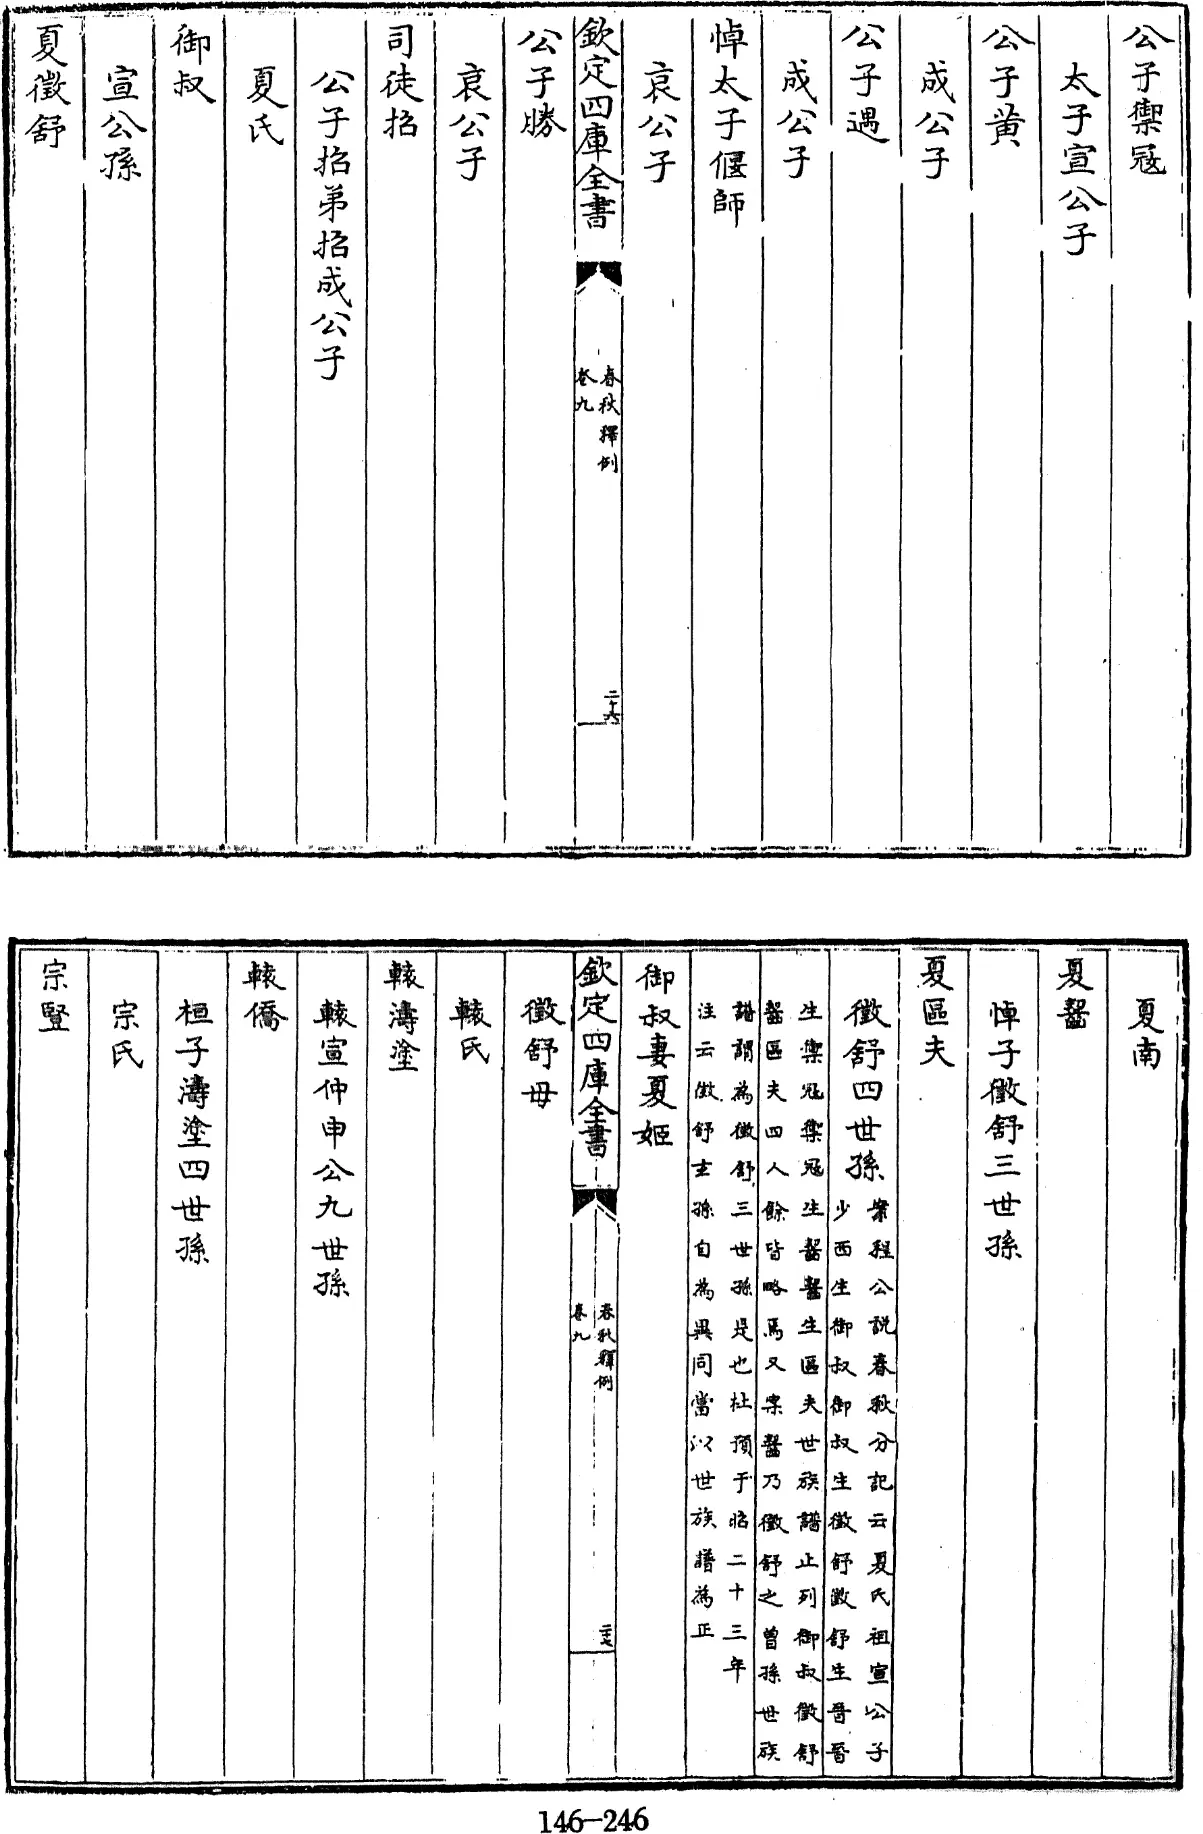 公子禦冦
太子宣公子
公子黄
成公子
公子遇
成公子
悼太子偃師
哀公子
欽定四庫全書
春秋釋例
卷九
二十六
公子勝
哀公子
司徒招
公子招弟招成公子
夏氏
御叔
宣公孫
夏徵舒
夏南
夏齧
悼子徵舒三世孫
夏區夫
徵舒四世孫
案程公説春秋分記云夏氏祖宣公子
少西生御叔御叔生徵舒徵舒生晉晉
生禦冦禦冦生齧齧生區夫世族譜止列御叔徵舒
齧區夫四人餘皆略焉又案齧乃徵舒之曾孫世族
譜謂為徵舒三世孫是也杜預于昭二十三年
注云徵舒玄孫自為異同當以世族譜為正
御叔妻夏姬
欽定四庫全書
春秋釋例
卷九
二十七
徵舒母
轅氏
轅濤塗
轅宣仲申公九世孫
轅僑
桓子濤塗四世孫
宗氏
宗豎
146-246